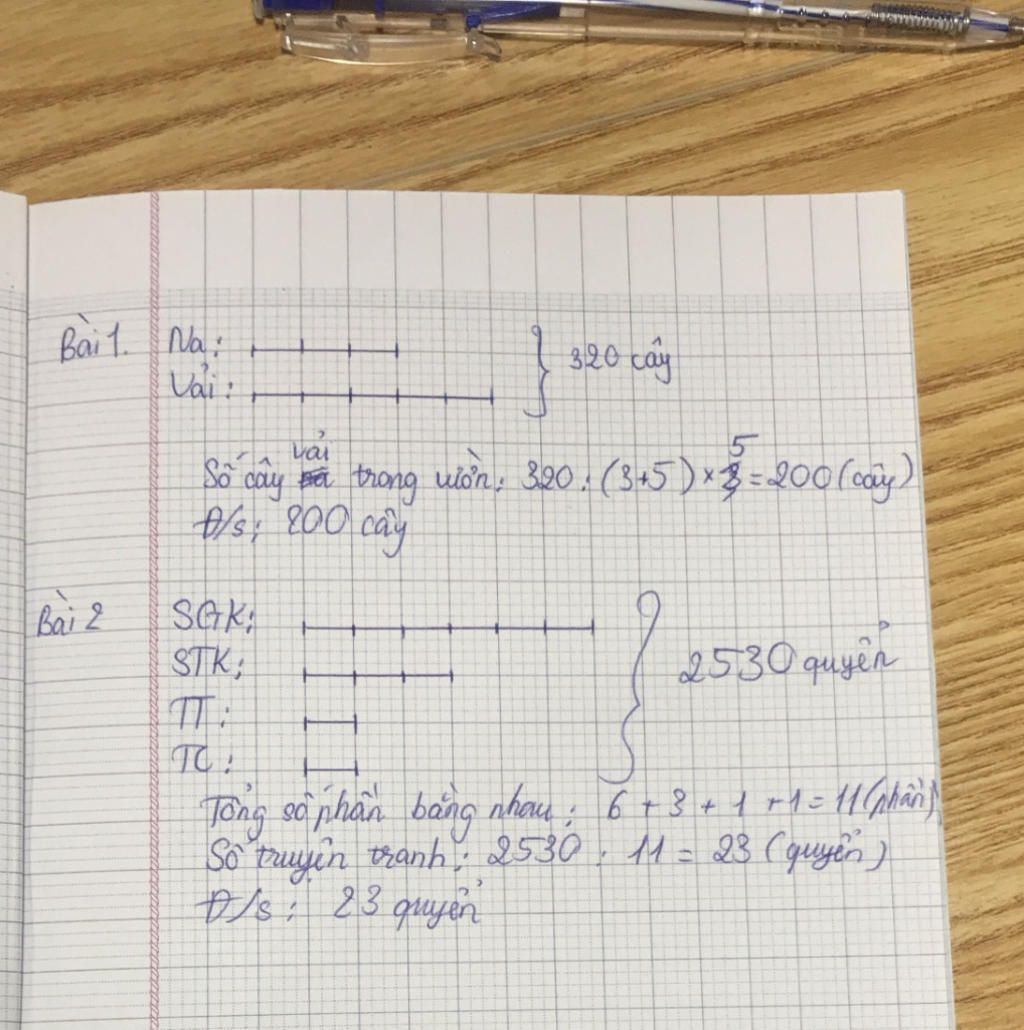 Bài 1. Na:
320 cây
Vải:
Số cây vải trong vườn: 320 : (3+5) × 5 = 200 (cây)
Đ/s: 200 cây
Bài 2 SGK:
STK:
2530 quyển
TT:
TC:
Tổng số phần bằng nhau: 6 + 3 + 1 + 1 = 11 (phần)
Số truyện tranh: 2530 : 11 = 23 (quyển)
Đ/s: 23 quyển